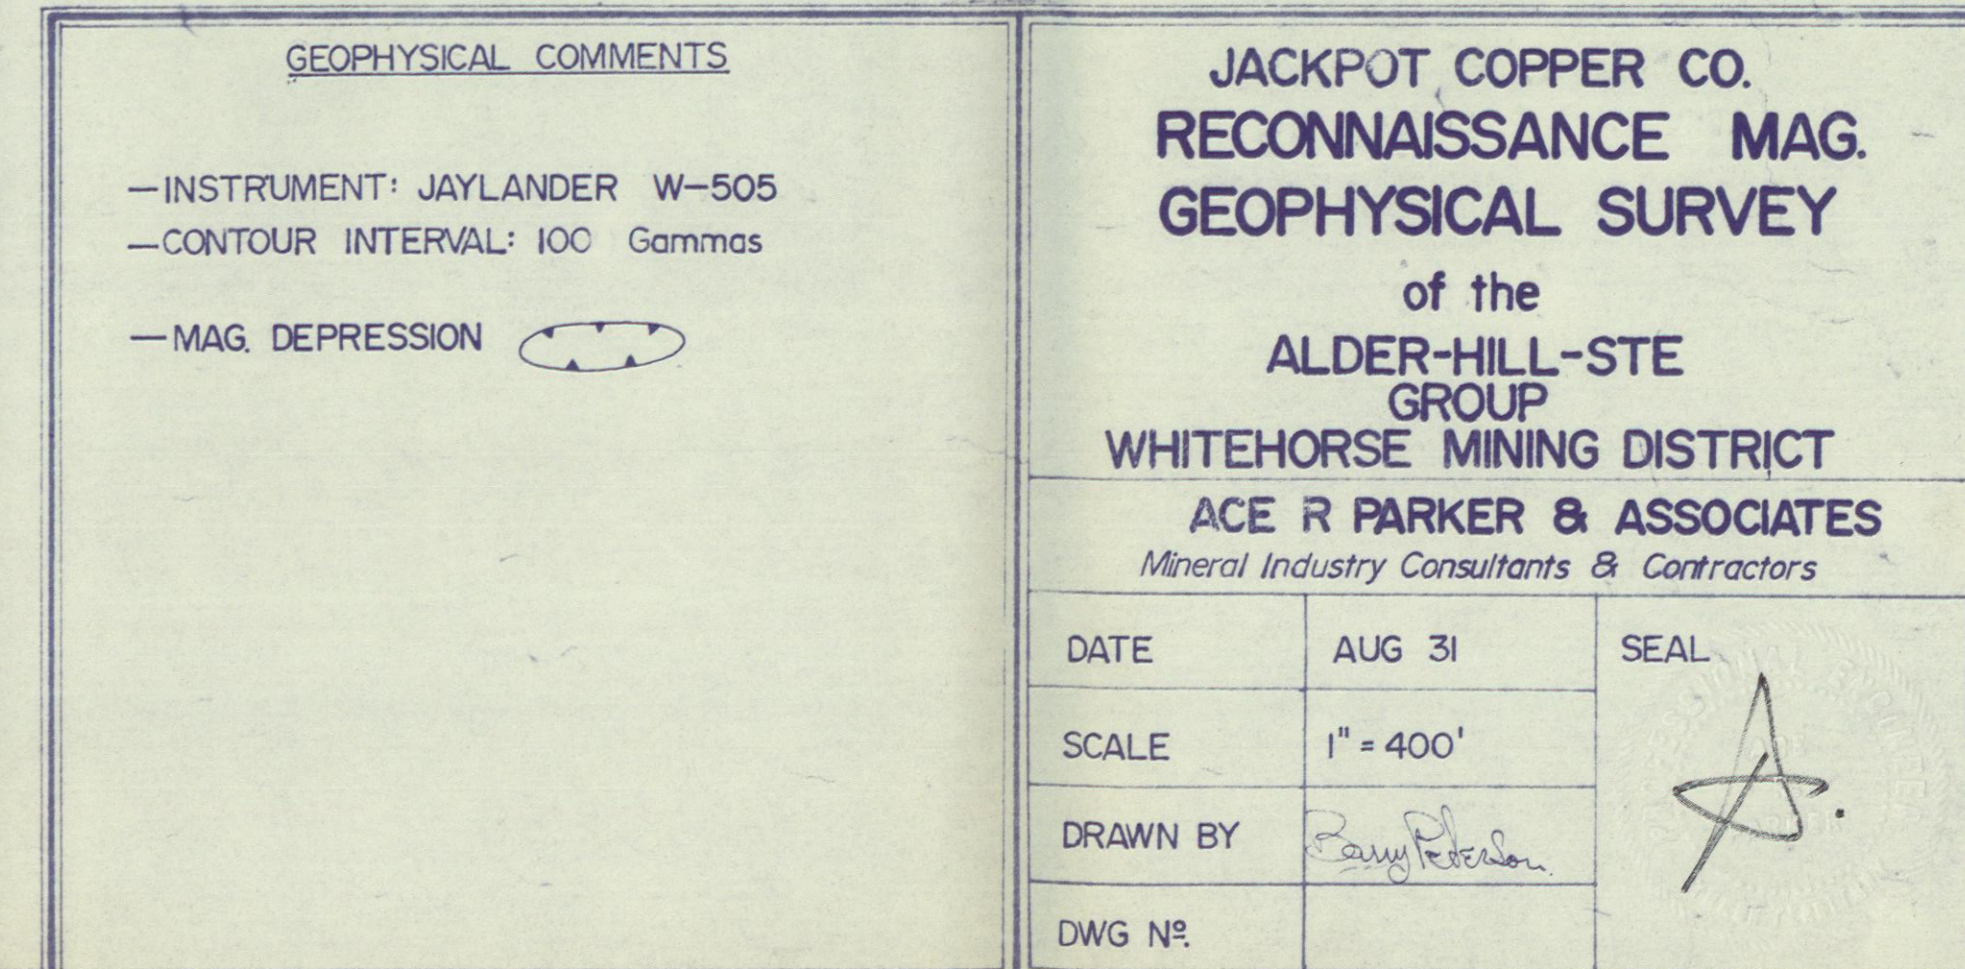 GEOPHYSICAL COMMENTS
—INSTRUMENT: JAYLANDER W-505
—CONTOUR INTERVAL: 100 Gammas
—MAG. DEPRESSION
JACKPOT COPPER CO.
RECONNAISSANCE MAG.
GEOPHYSICAL SURVEY
of the
ALDER-HILL-STE
GROUP
WHITEHORSE MINING DISTRICT
ACE R PARKER & ASSOCIATES
Mineral Industry Consultants & Contractors
DATE AUG 31
SEAL
SCALE 1" = 400'
DRAWN BY Barry Pederson.
DWG Nº.